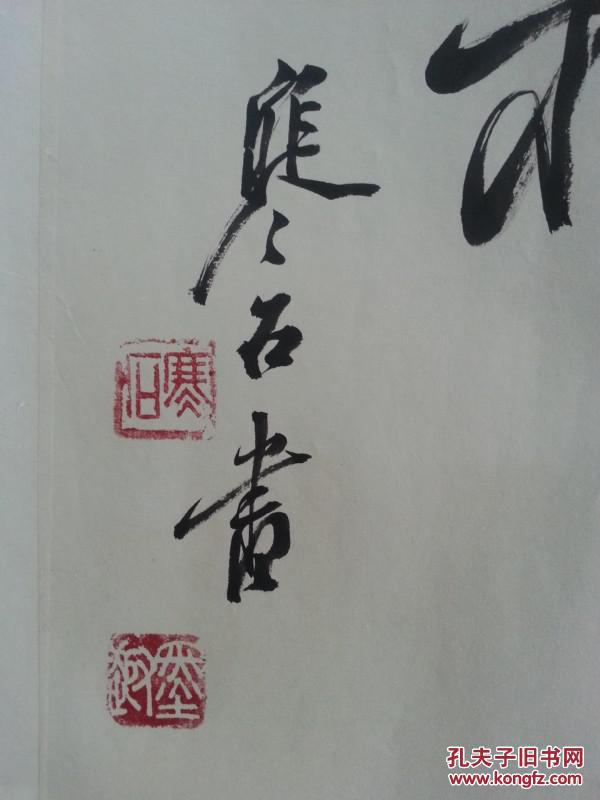 寒石書
寒石
墨趣
孔夫子旧书网
www.kongfz.com